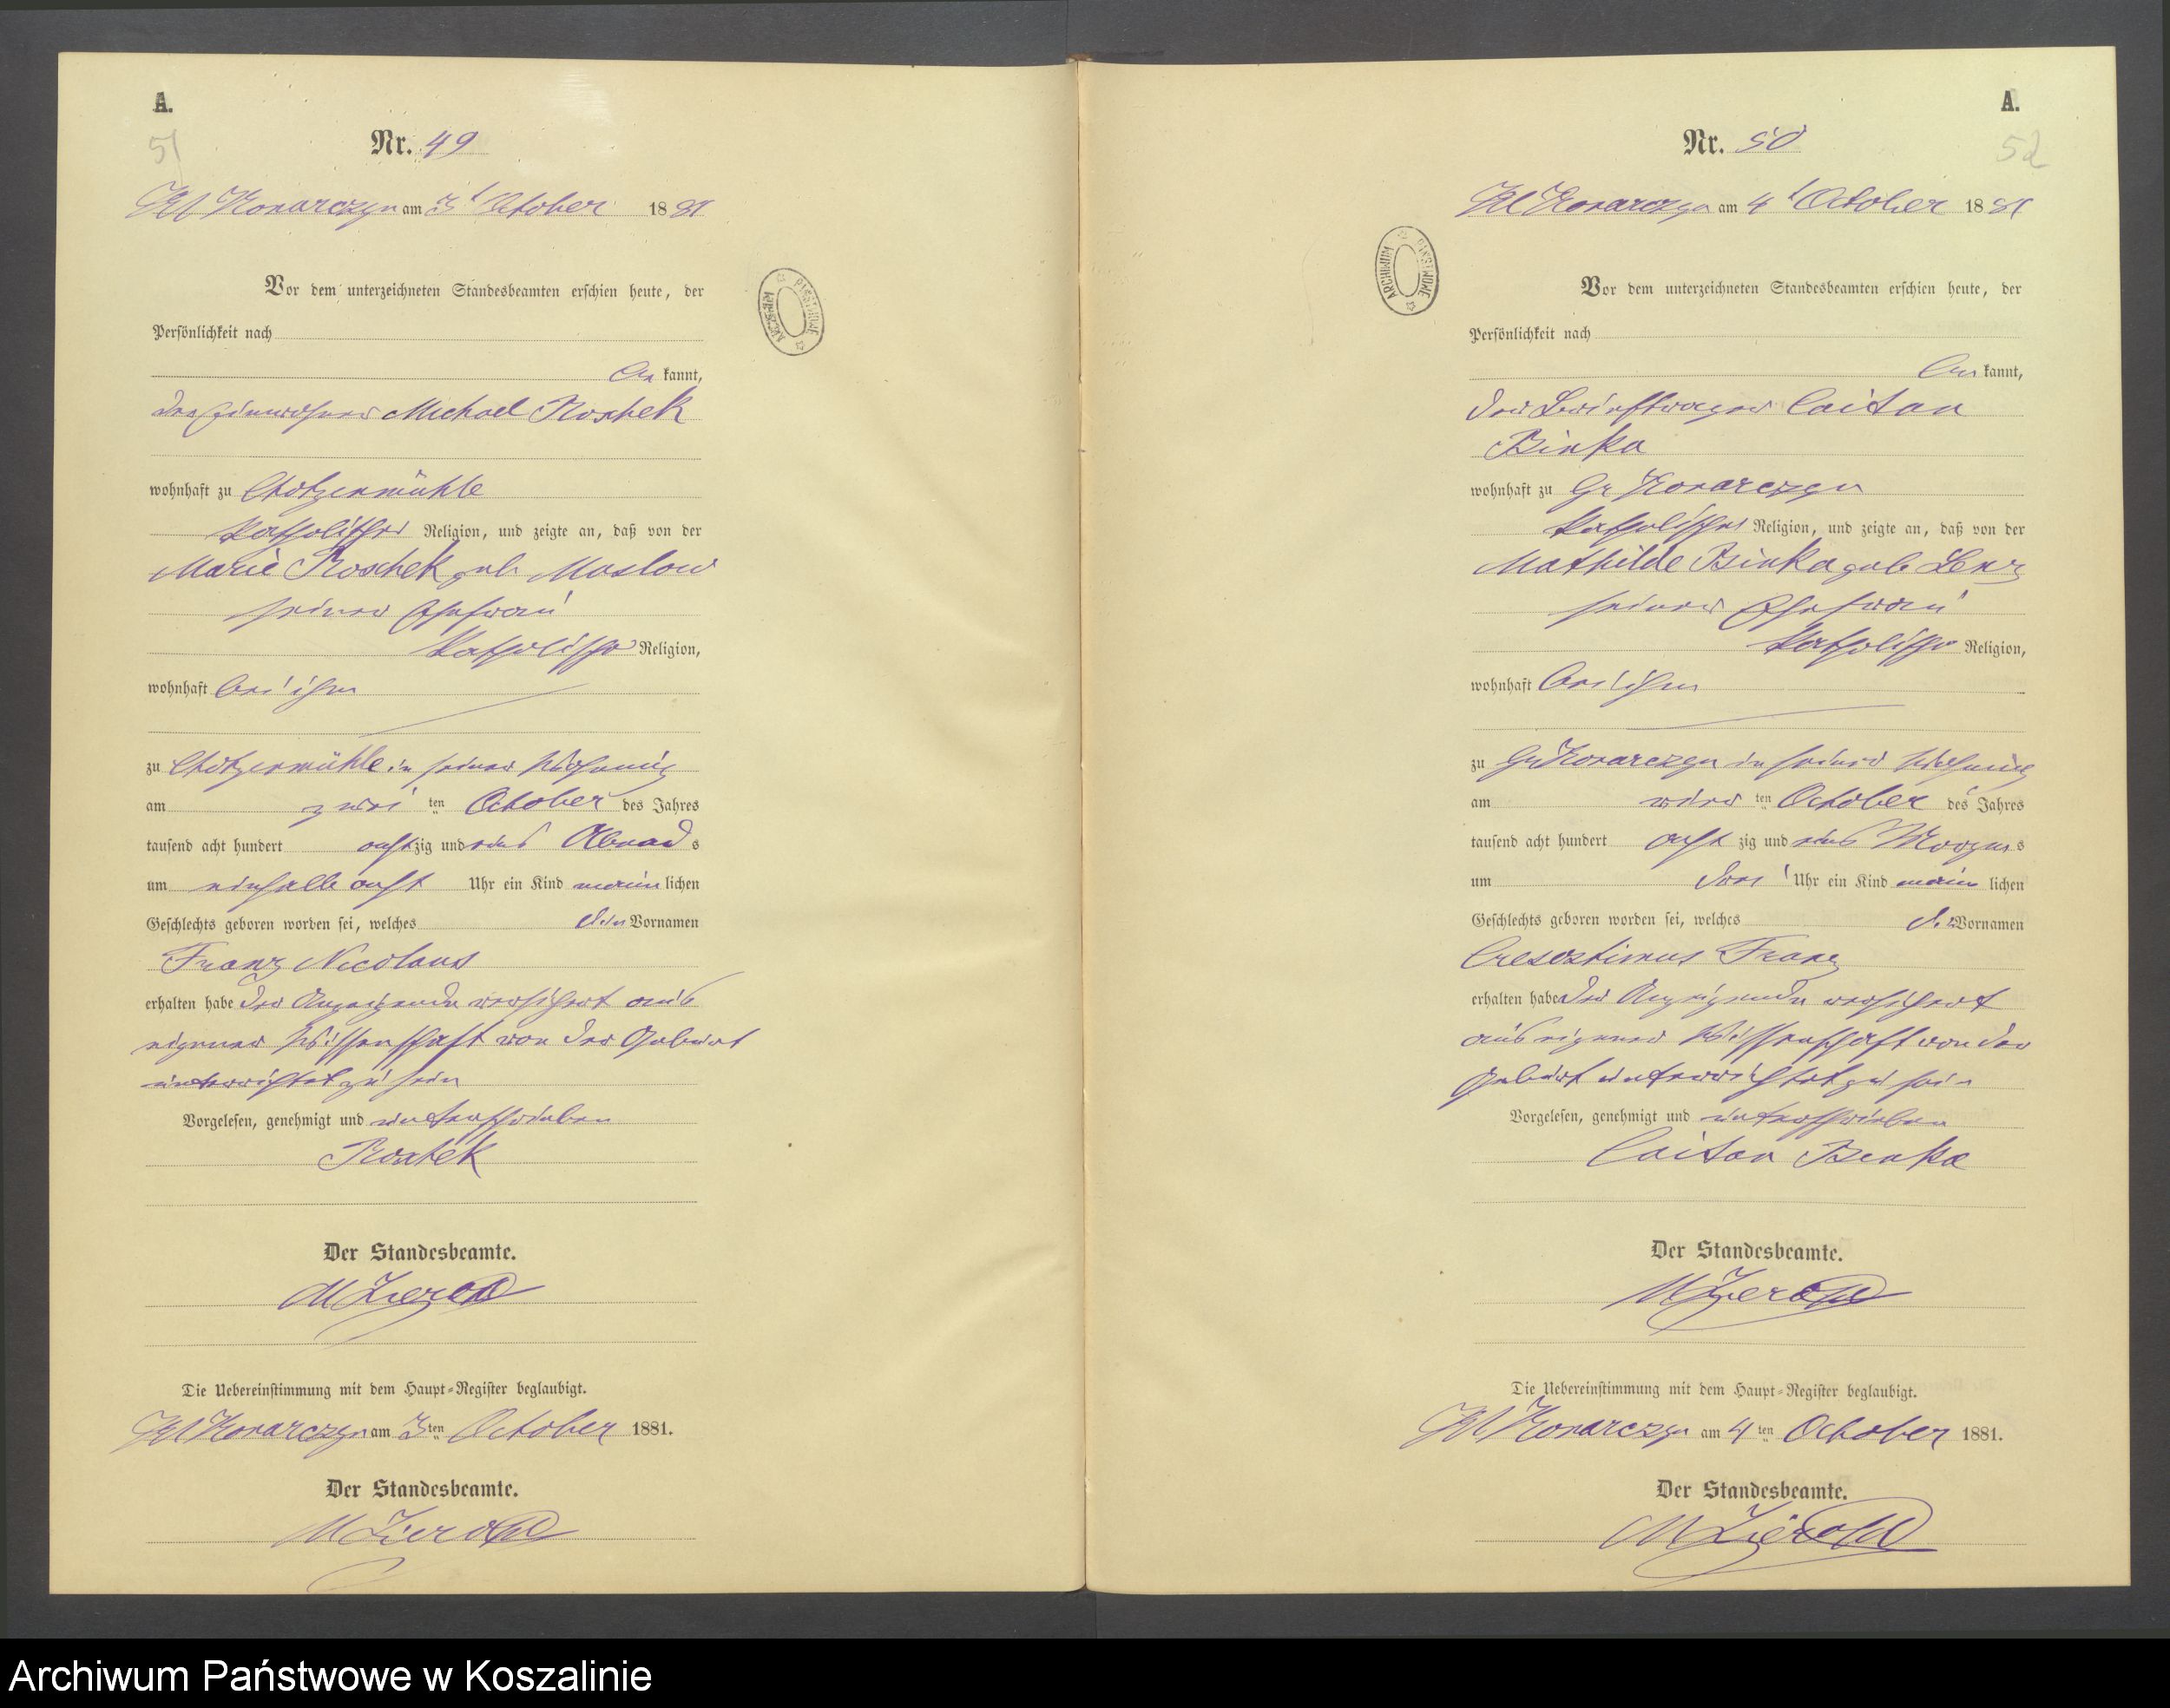 A.
51
Nr. 49
Kl Konarczyn am 3t October 1881
Vor dem unterzeichneten Standesbeamten erschien heute, der
Persönlichkeit nach
be kannt,
der Einwohner Michael
wohnhaft zu Chotzenmühle
katholischer Religion, und zeigte an, daß von der
Marie geb
seiner Ehefrau
katholischer Religion,
wohnhaft bei ihm
zu Chotzenmühle in seiner Wohnung
am zwei ten October des Jahres
tausend acht hundert acht zig und eins Abends
um einhalb acht Uhr ein Kind männlichen
Geschlechts geboren worden sei, welches den Vornamen
Franz Nicolaus
erhalten habe der Anzeigende versichert aus
eigener Wissenschaft von der Geburt
unterrichtet zu sein
Vorgelesen, genehmigt und unterschrieben
Der Standesbeamte.
M Zierold
Die Uebereinstimmung mit dem Haupt-Register beglaubigt.
Kl Konarczyn am 3ten October 1881.
Der Standesbeamte.
M Zierold
A.
52
Nr. 50
Kl Konarczyn am 4t October 1881
ARCHIWUM PAŃSTWOWE
Vor dem unterzeichneten Standesbeamten erschien heute, der
Persönlichkeit nach
be kannt,
der Caitan
Binka
wohnhaft zu Gr Konarczyn
katholischer Religion, und zeigte an, daß von der
Mathilde Binka geb Lenz
seiner Ehefrau
katholischer Religion,
wohnhaft bei ihm
zu Gr Konarczyn in seiner Wohnung
am vier ten October des Jahres
tausend acht hundert acht zig und eins Morgens
um drei Uhr ein Kind männlichen
Geschlechts geboren worden sei, welches die Vornamen
Franz
erhalten habe der Anzeigende versichert
aus eigener Wissenschaft von der
Geburt unterrichtet zu sein
Vorgelesen, genehmigt und unterschrieben
Caitan Binka
Der Standesbeamte.
M Zierold
Die Uebereinstimmung mit dem Haupt-Register beglaubigt.
Kl Konarczyn am 4ten October 1881.
Der Standesbeamte.
M Zierold
Archiwum Państwowe w Koszalinie